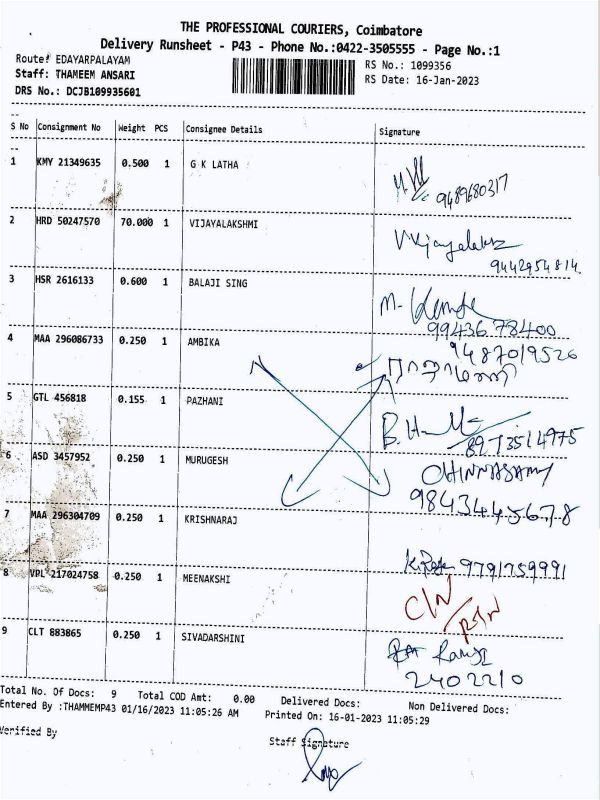 THE PROFESSIONAL COURIERS, Coimbatore
Delivery Runsheet - P43 - Phone No.:0422-3505555 - Page No.:1
Route: EDAYARPALAYAM
RS No.: 1099356
Staff: THAMEEM ANSARI
RS Date: 16-Jan-2023
DRS No.: DCJB109935601
S No Consignment No Weight PCS Consignee Details Signature
1 KMY 21349635 0.500 1 G K LATHA
9489680317
2 HRD 50247570 70.000 1 VIJAYALAKSHMI
Vijayalakshmi
9442954814
3 HSR 2616133 0.600 1 BALAJI SING
M.
99436 78400
4 MAA 296086733 0.250 1 AMBIKA
9487019526
5 GTL 456818 0.155 1 PAZHANI
B.
8973514975
6 ASD 3457952 0.250 1 MURUGESH
CHINNASAMY
9843445678
7 MAA 296304709 0.250 1 KRISHNARAJ
9791759991
8 VPL 217024758 0.250 1 MEENAKSHI
C/N
9 CLT 883865 0.250 1 SIVADARSHINI
2402210
Total No. Of Docs: 9 Total COD Amt: 0.00 Delivered Docs: Non Delivered Docs:
Entered By :THAMMEMP43 01/16/2023 11:05:26 AM Printed On: 16-01-2023 11:05:29
Verified By
Staff Signature